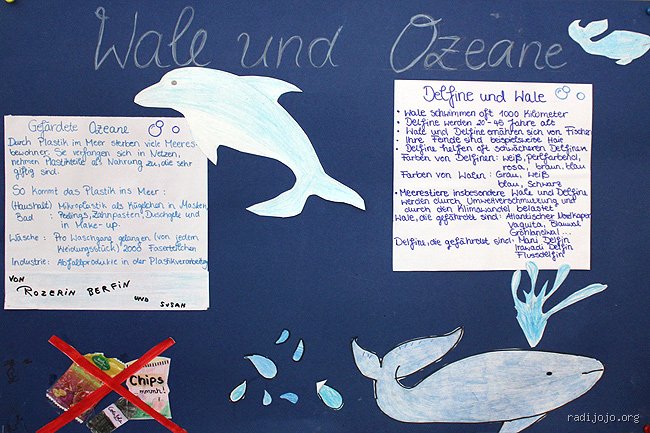 Wale und Ozeane
Gefärdete Ozeane
Durch Plastik im Meer sterben viele Meeres-
bewohner. Sie verfangen sich in Netzen,
nehmen Plastikteile als Nahrung zu, die sehr
giftig sind.
So kommt das Plastik ins Meer:
(Haushalt) Mikroplastik als Kügelchen in Masken
Bad : Peelings, Zahnpasten, Duschgele und
in Make-up.
Wäsche: Pro Waschgang gelangen (von jedem
Kleidungsstück) 2000 Faserteilchen
Industrie: Abfallprodukte in der Plastikverarbeitung
VON
ROZERIN BERFIN
UND SUSAN
Delfine und Wale
• Wale schwimmen oft 1000 Kilometer
• Delfine werden 20-45 Jahre alt
• Wale und Delfine ernähren sich von Fischen
Ihre Feinde sind beispielsweise Haie
• Delfine helfen oft schwächeren Delfinen
Farben von Delfinen: weiß, perlfarbend,
rosa, braun, blau
Farben von Walen: Grau, weiß
blau, schwarz
• Meerestiere insbesondere Wale und Delfine
werden durch Umweltverschmutzung und
durch den Klimawandel belastet
Wale, die gefährdet sind: Atlantischer Nordkaper
Vaquita, Blauwal
Grönlandwal...
Delfine, die gefährdet sind: Maui Delfin
Irawadi Delfin
Flussdelfin
Chips
mmmh!
radijojo.org